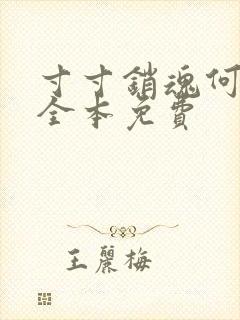 寸寸銷魂何
全本免費
王麗梅